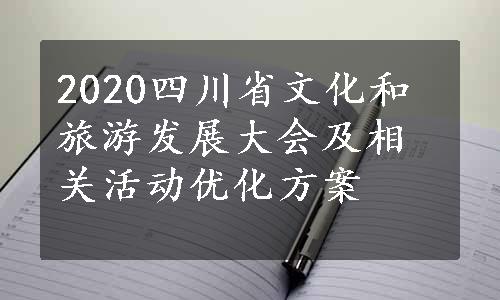 2020四川省文化和
旅游发展大会及相
关活动优化方案